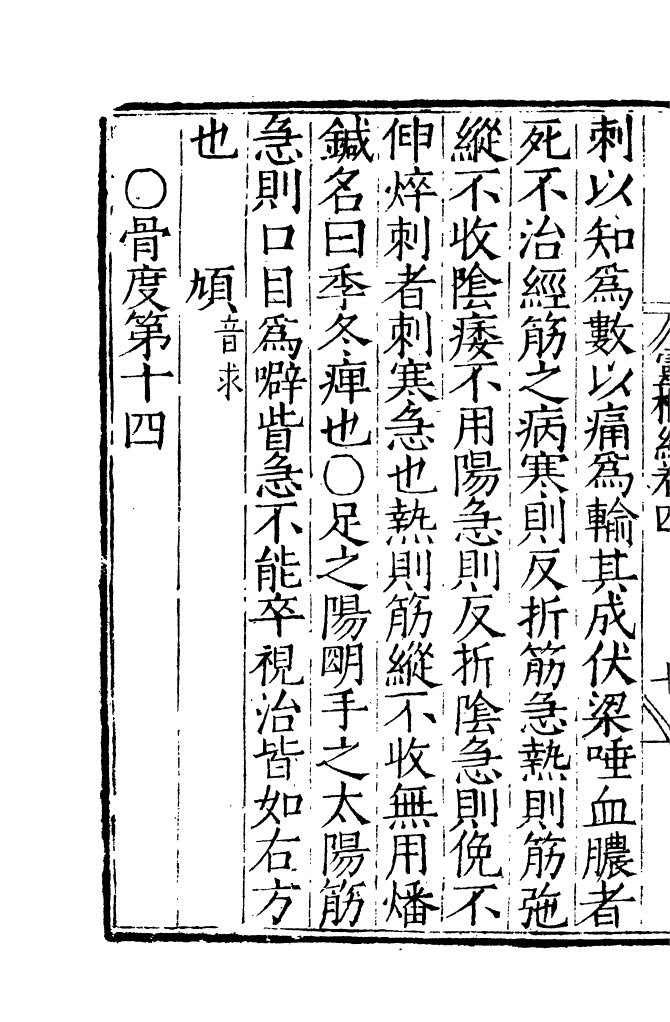 刺以知爲數以痛爲輸其成伏梁唾血膿者
死不治經筋之病寒則反折筋急熱則筋弛
縱不收陰痿不用陽急則反折陰急則俛不
伸焠刺者刺寒急也熱則筋縱不收無用燔
鍼名曰季冬痺也○足之陽明手之太陽筋
急則口目爲噼眥急不能卒視治皆如右方
也　頄音求
○骨度第十四